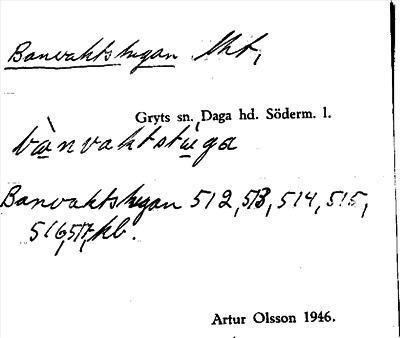 Banvaktstugan lht,
Gryts sn, Daga hd. Söderm. l.
bànvaktstúga
Banvaktstugan 512, 513, 514, 515,
516, 517, kb.
Artur Olsson 1946.